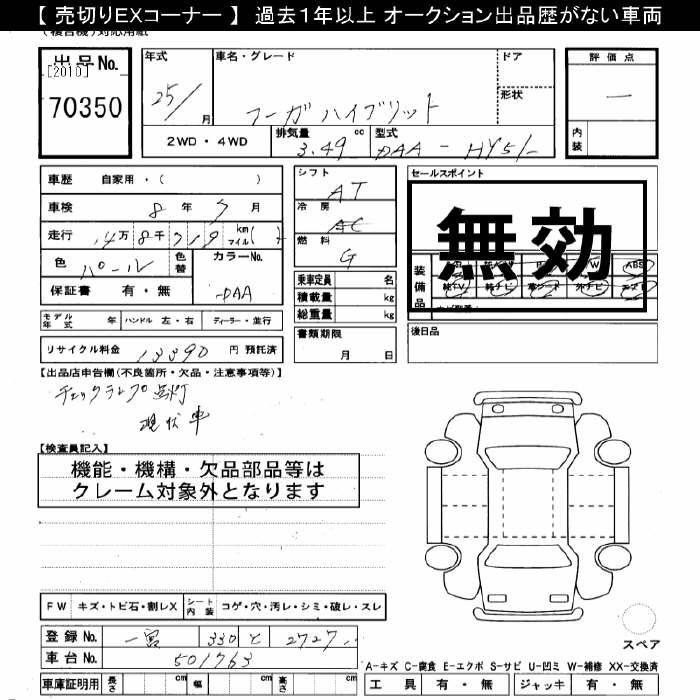 【 売切りEXコーナー 】 過去１年以上 オークション出品歴がない車両
(複合機)対応用紙
出品No.
[2010]
70350
年式
25/
月
車名・グレード
フーガハイブリット
ドア
形状
評価点
一
内装
2WD・4WD
排気量
3.49
cc
型式
DAA-HY51-
車歴 自家用・( )
車検 8年 7月
走行 14万8千719 km マイル( )
色 パール
色替
カラーNo.
保証書 有・無
-DAA
モデル年式 年
ハンドル 左・右
ディーラー・並行
リサイクル料金 13390 円 預託済
シフト
AT
冷房
AC
燃料
G
乗車定員 名
積載量 kg
総重量 kg
書類期限
月 日
セールスポイント
無効
装備品
ABS
純TV 純ナビ 革シート 外ナビ エアB
後日品
【出品店申告欄(不良箇所・欠品・注意事項等)】
チェックランプ点灯
現状車
【検査員記入】
機能・機構・欠品部品等は
クレーム対象外となります
FW キズ・トビ石・割レX
シート内装 コゲ・穴・汚レ・シミ・破レ・スレ
登録No. 一宮 330 と 2727
車台No. 501763
車庫証明用 長さ cm 幅 cm 高さ cm
スペア
A-キズ C-腐食 E-エクボ S-サビ U-凹ミ W-補修 XX-交換済
工具 有・無 ジャッキ 有・無